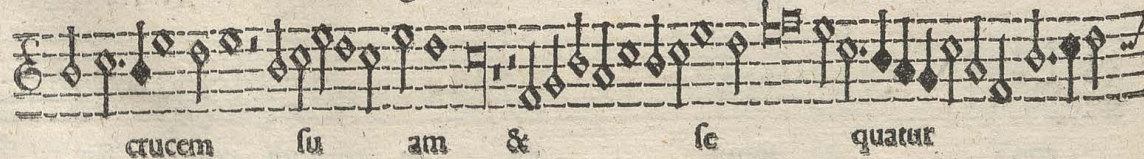 crucem ſu am & ſe quatur